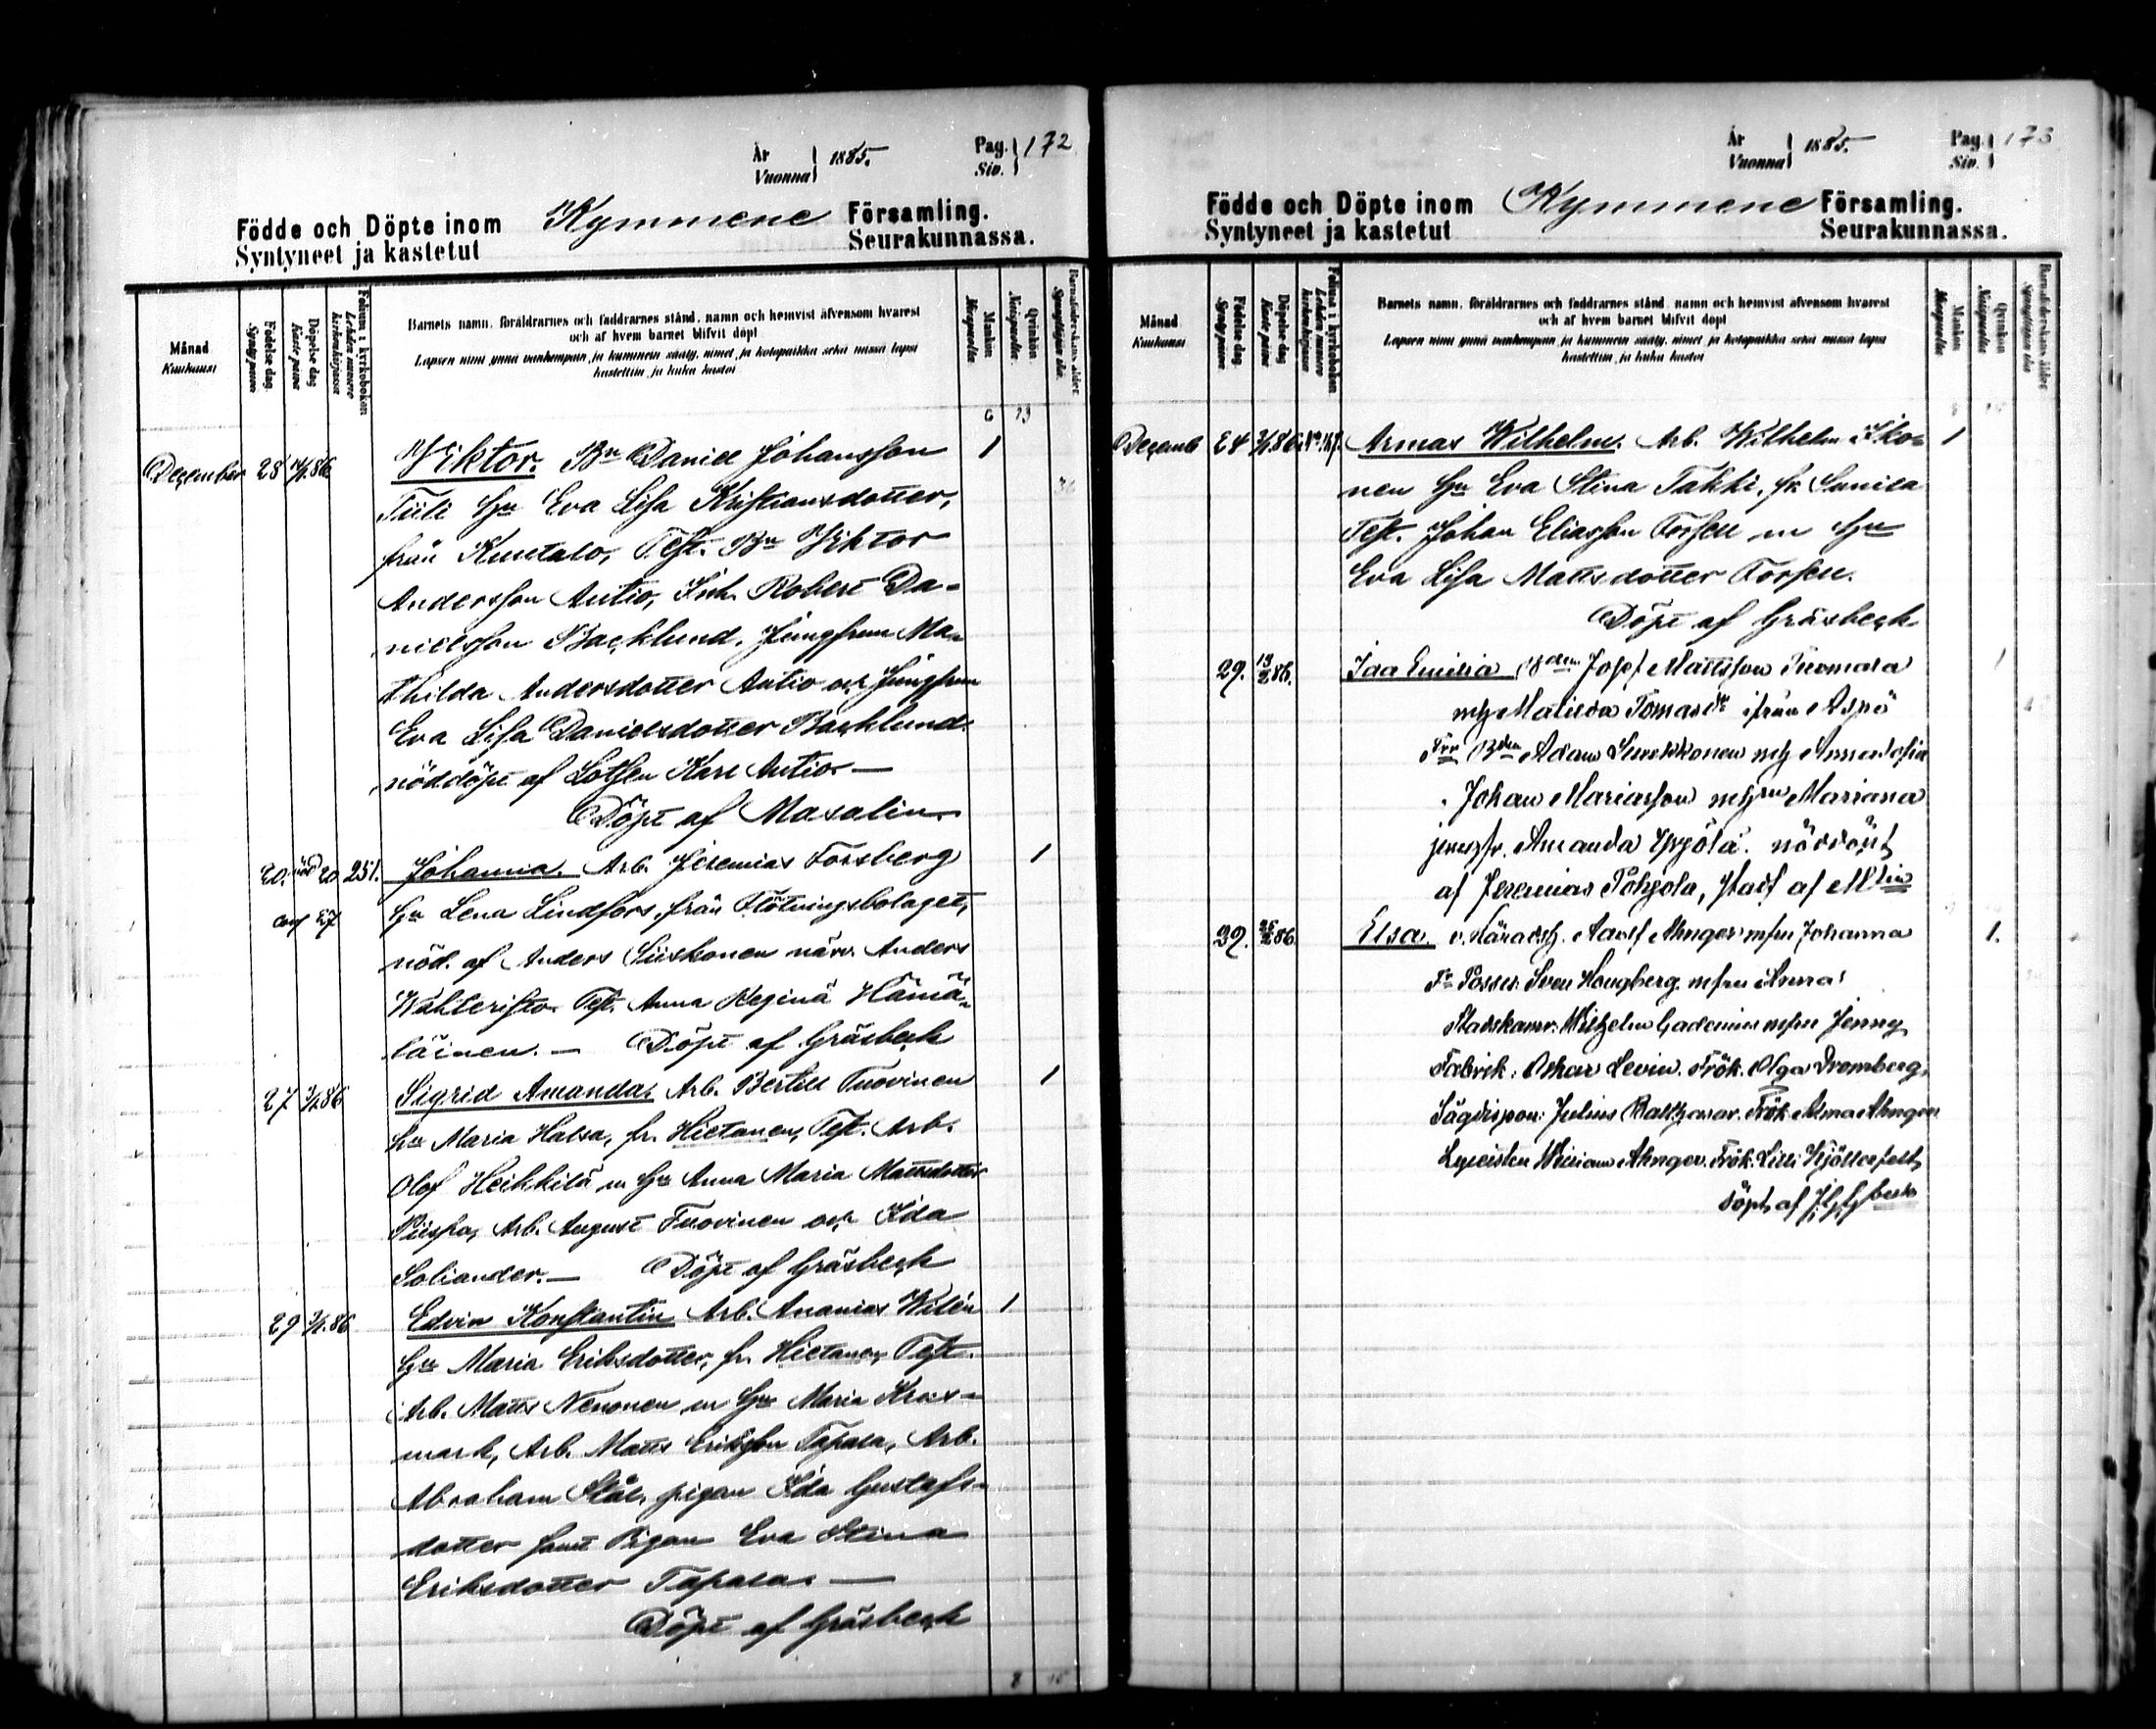 År
Vuonna 1885.
Pag.
Siv. 172
Födde och Döpte inom Kymmene Församling.
Syntyneet ja kastetut Seurakunnassa.
Månad
Kuukausi
Födelse dag.
Syntypäivä
Döpelse dag
Kaste päivä
Folium i kyrkoboken
Lehden numero kirkonkirjassa
Barnets namn, föräldrarnes och faddrarnes stånd, namn och hemvist äfvensom hvarest
och af hvem barnet blifvit döpt
Lapsen nimi ynnä vanhempain ja kummein sääty, nimet ja kotopaikka sekä missä lapsi
kastettiin ja kuka kastoi
Mankön
Miespuolta
Qvinkön
Naispuolta
Barnaföderskans ålder
6 13
December 28 Viktor. Bn Daniel Johansson 1
Tiili Hu Eva Lisa Kristiansdotter,
från Kuutalo, Test. Bn Viktor
Andersson Autio, Inh. Robert Da-
nielsson Backlund, Jungfrun Ma-
thilda Andersdotter Autio och Jungfrun
Eva Lisa Danielsdotter Backlund.
nöddöpt af Lotsen Karl Autio. —
Döpt af Masalin
20. nöd 20 251. Johanna. Arb. Jeremias Forsberg 1
conf 27 Hu Lena Lindfors, från Flötningsbolaget,
nöd. af Anders Siiskonen närv. Anders
Test. Anna Regina Hämä-
läinen. — Döpt af Gräsbeck
27 Sigrid Amanda. Arb. Bertill Tuovinen 1
Hu Maria Halsa, fr. Hietanen, Test. Arb.
Olof Heikkilä m Hu Anna Maria Mattsdotter
Piispa, Arb. August Tuovinen och Ida
Soliander. — Döpt af Gräsbeck
29 Edvin Konstantin Arb. Ananias Wilén 1
Hu Maria Eriksdotter, fr. Hietanen, Test.
Arb. Matts Nenonen m Hu Maria Kras-
mark, Arb. Matts Eriksson Tapala, Arb.
Abraham Stål, pigan Ida Gustafs-
dotter samt Pigan Eva Stina
Eriksdotter Tapala. —
Döpt af Gräsbeck
8 15
År
Vuonna 1885.
Pag.
Siv. 173
Födde och Döpte inom Kymmene Församling.
Syntyneet ja kastetut Seurakunnassa.
Månad
Kuukausi
Födelse dag.
Syntypäivä
Döpelse dag
Kaste päivä
Folium i kyrkoboken
Lehden numero kirkonkirjassa
Barnets namn, föräldrarnes och faddrarnes stånd, namn och hemvist äfvensom hvarest
och af hvem barnet blifvit döpt
Lapsen nimi ynnä vanhempain ja kummein sääty, nimet ja kotopaikka sekä missä lapsi
kastettiin ja kuka kastoi
Mankön
Miespuolta
Qvinkön
Naispuolta
Barnaföderskans ålder
Decemb 24 Armas Wilhelm. Arb. Wilhelm Iko- 1
nen Hu Eva Stina Takki, fr Sunila
Test. Johan Eliasson Forsell m Hu
Eva Lisa Mattsdotter Forsell.
Döpt af Gräsbeck
29. 86. Ida Emilia Josef Mattsson Tuomala 1
Matilda ifrån Aspö
Adam Suikkonen Anna Sofia
Johan Mariasson Mariana
jungfr. Amanda Yrjölä. nöddöpt
af Jeremias Pohjola,
29. 86. Elsa. v. Häradsh. Adolf Ahnger m fru Johanna 1.
Sven Hougberg m fru Anna
Wilhelm Gadenius m fru Jenny
Fabrik. Oskar Levin. Frök. Olga Dromberg.
Sågdispon: Julius Balthasar. Frök Alma Ahnger
Lyceisten William Ahnger. Frök. Lilli
döpt af